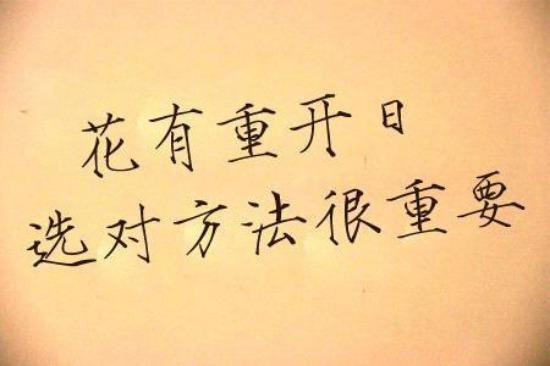 花有重开日
选对方法很重要